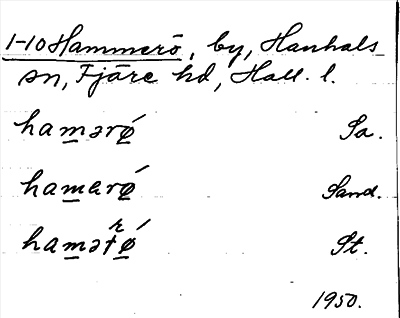 1-10 Hammerö, by, Hanhals
sn, Fjäre hd, Hall. l.
hamərǿ Sa.
hamarǿ Sand.
hamətǿ St.
r
1950.